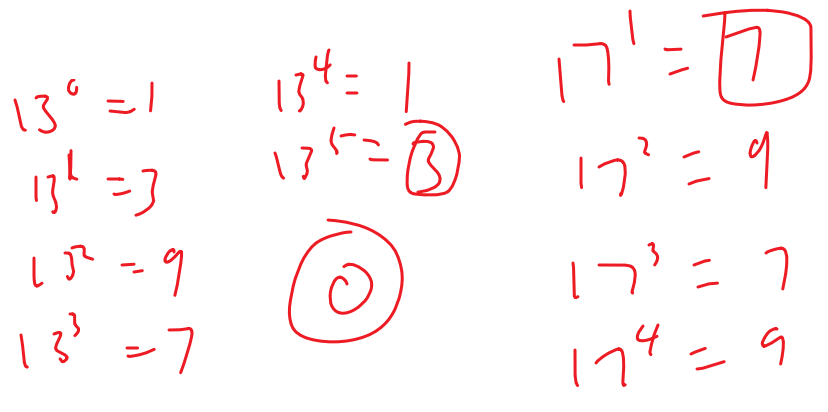 13⁰ = 1
13¹ = 3
13² = 9
13³ = 7
13⁴ = 1
13⁵ = 3
0
17¹ = 7
17² = 9
17³ = 7
17⁴ = 9